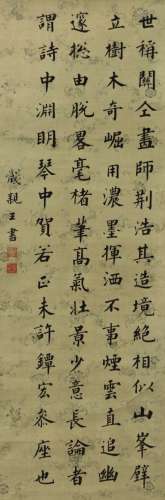 世稱關仝畫師荊浩其造境絕相似山峯壁
立樹木奇崛用濃墨揮洒不事煙雲直追幽
邃揔由脫畧毫楮筆高氣壯景少意長論者
謂詩中淵明琴中賀若正未許鐔宏參座也
成親王書